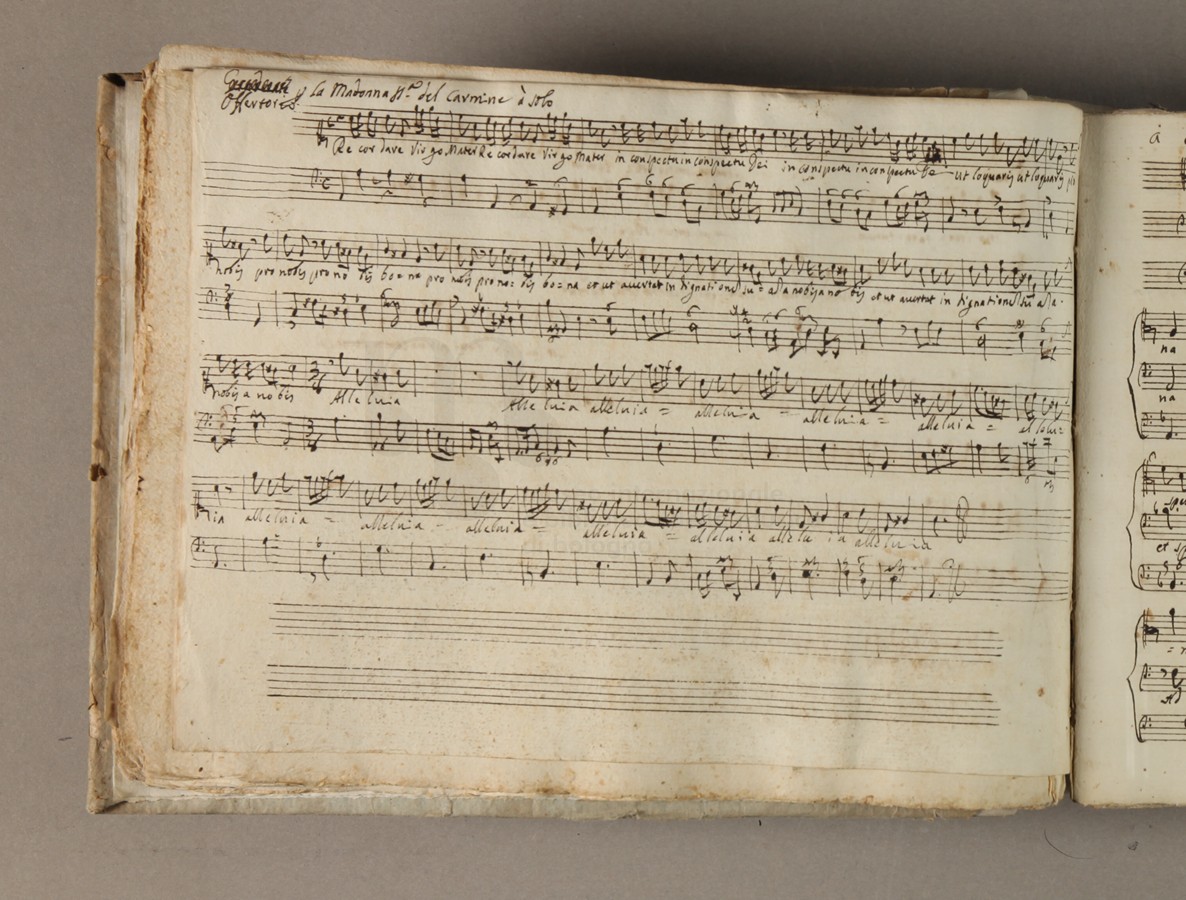 Offertorio
p La Madonna SS.ª del Carmine à solo
Re cor dare Virgo Mater Recordare Virgo Mater in conspectu in conspectu Dei in conspectu in conspectu De ut loquaris ut loquaris pro
nobis pro nobis pro no bis bo = na pro nobis pro no = bis bo = na et ut avertat in dignationē su = a a nobis a no bis et ut avertat in dignationē suā a a.
nobis a no bis Alle luia Alle luia alleluia = alleluia = alleluia = alleluia = allelu=
ia alleluia = alleluia = alleluia = alleluia = alleluia allelu ia alleluia
à
na
na
et sp
Ad